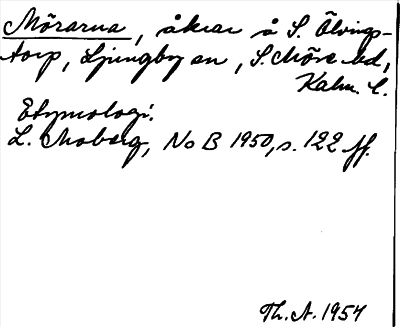 Mörarna, åkrar å S. Ölvings-
torp, Ljungby sn, S. Möre hd,
Kalm. l.
Etymologi:
L. Moberg, NoB 1950, s. 122 ff.
Th. A. 1954